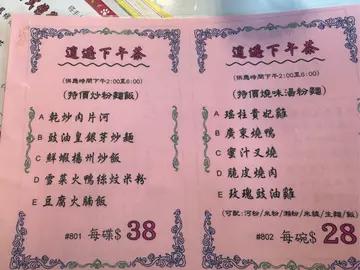 逍遙下午茶
(供應時間下午2:00至6:00)
(特價炒粉麵飯)
A 乾炒肉片河
B 豉油皇銀芽炒麵
C 鮮蝦揚州炒飯
D 雪菜火鴨絲炆米粉
E 豆腐火腩飯
#801 每碟$ 38
逍遙下午茶
(供應時間下午2:00至6:00)
(特價燒味湯粉麵)
A 瑤柱貴妃雞
B 廣東燒鴨
C 蜜汁叉燒
D 脆皮燒肉
E 玫瑰豉油雞
(可配:河粉/米粉/瀨粉/米線/生麵/飯)
#802 每碗$ 28